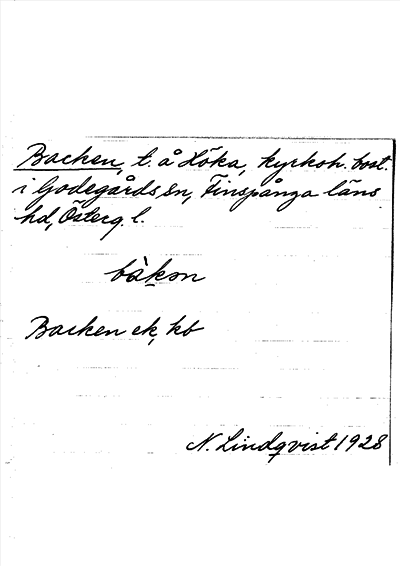 Backen, t. å Köka, kyrkoh. bost.
i Godegårds sn, Finspånga läns
hd, Österg. l.
bàkən
Backen ek, kb
N. Lindqvist 1928